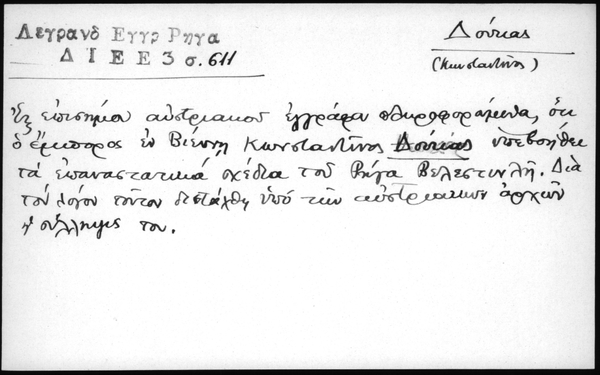 Λεγρανδ Εγγρ Ρηγα
Δ Ι Ε Ε 3 σ. 611
Δούκας
(Κωνσταντῖνος)
Ἐξ ἐπισήμου αὐστριακοῦ ἐγγράφου πληροφορούμεθα, ὅτι
ὁ ἔμπορος ἐν Βιέννῃ Κωνσταντῖνος Δούκας ὑπεβοήθει
τά ἐπαναστατικά σχέδια τοῦ Ρήγα Βελεστινλῆ. Διά
τόν λόγον τοῦτον διετάχθη ὑπό τῶν αὐστριακῶν ἀρχῶν
ἡ σύλληψίς του.